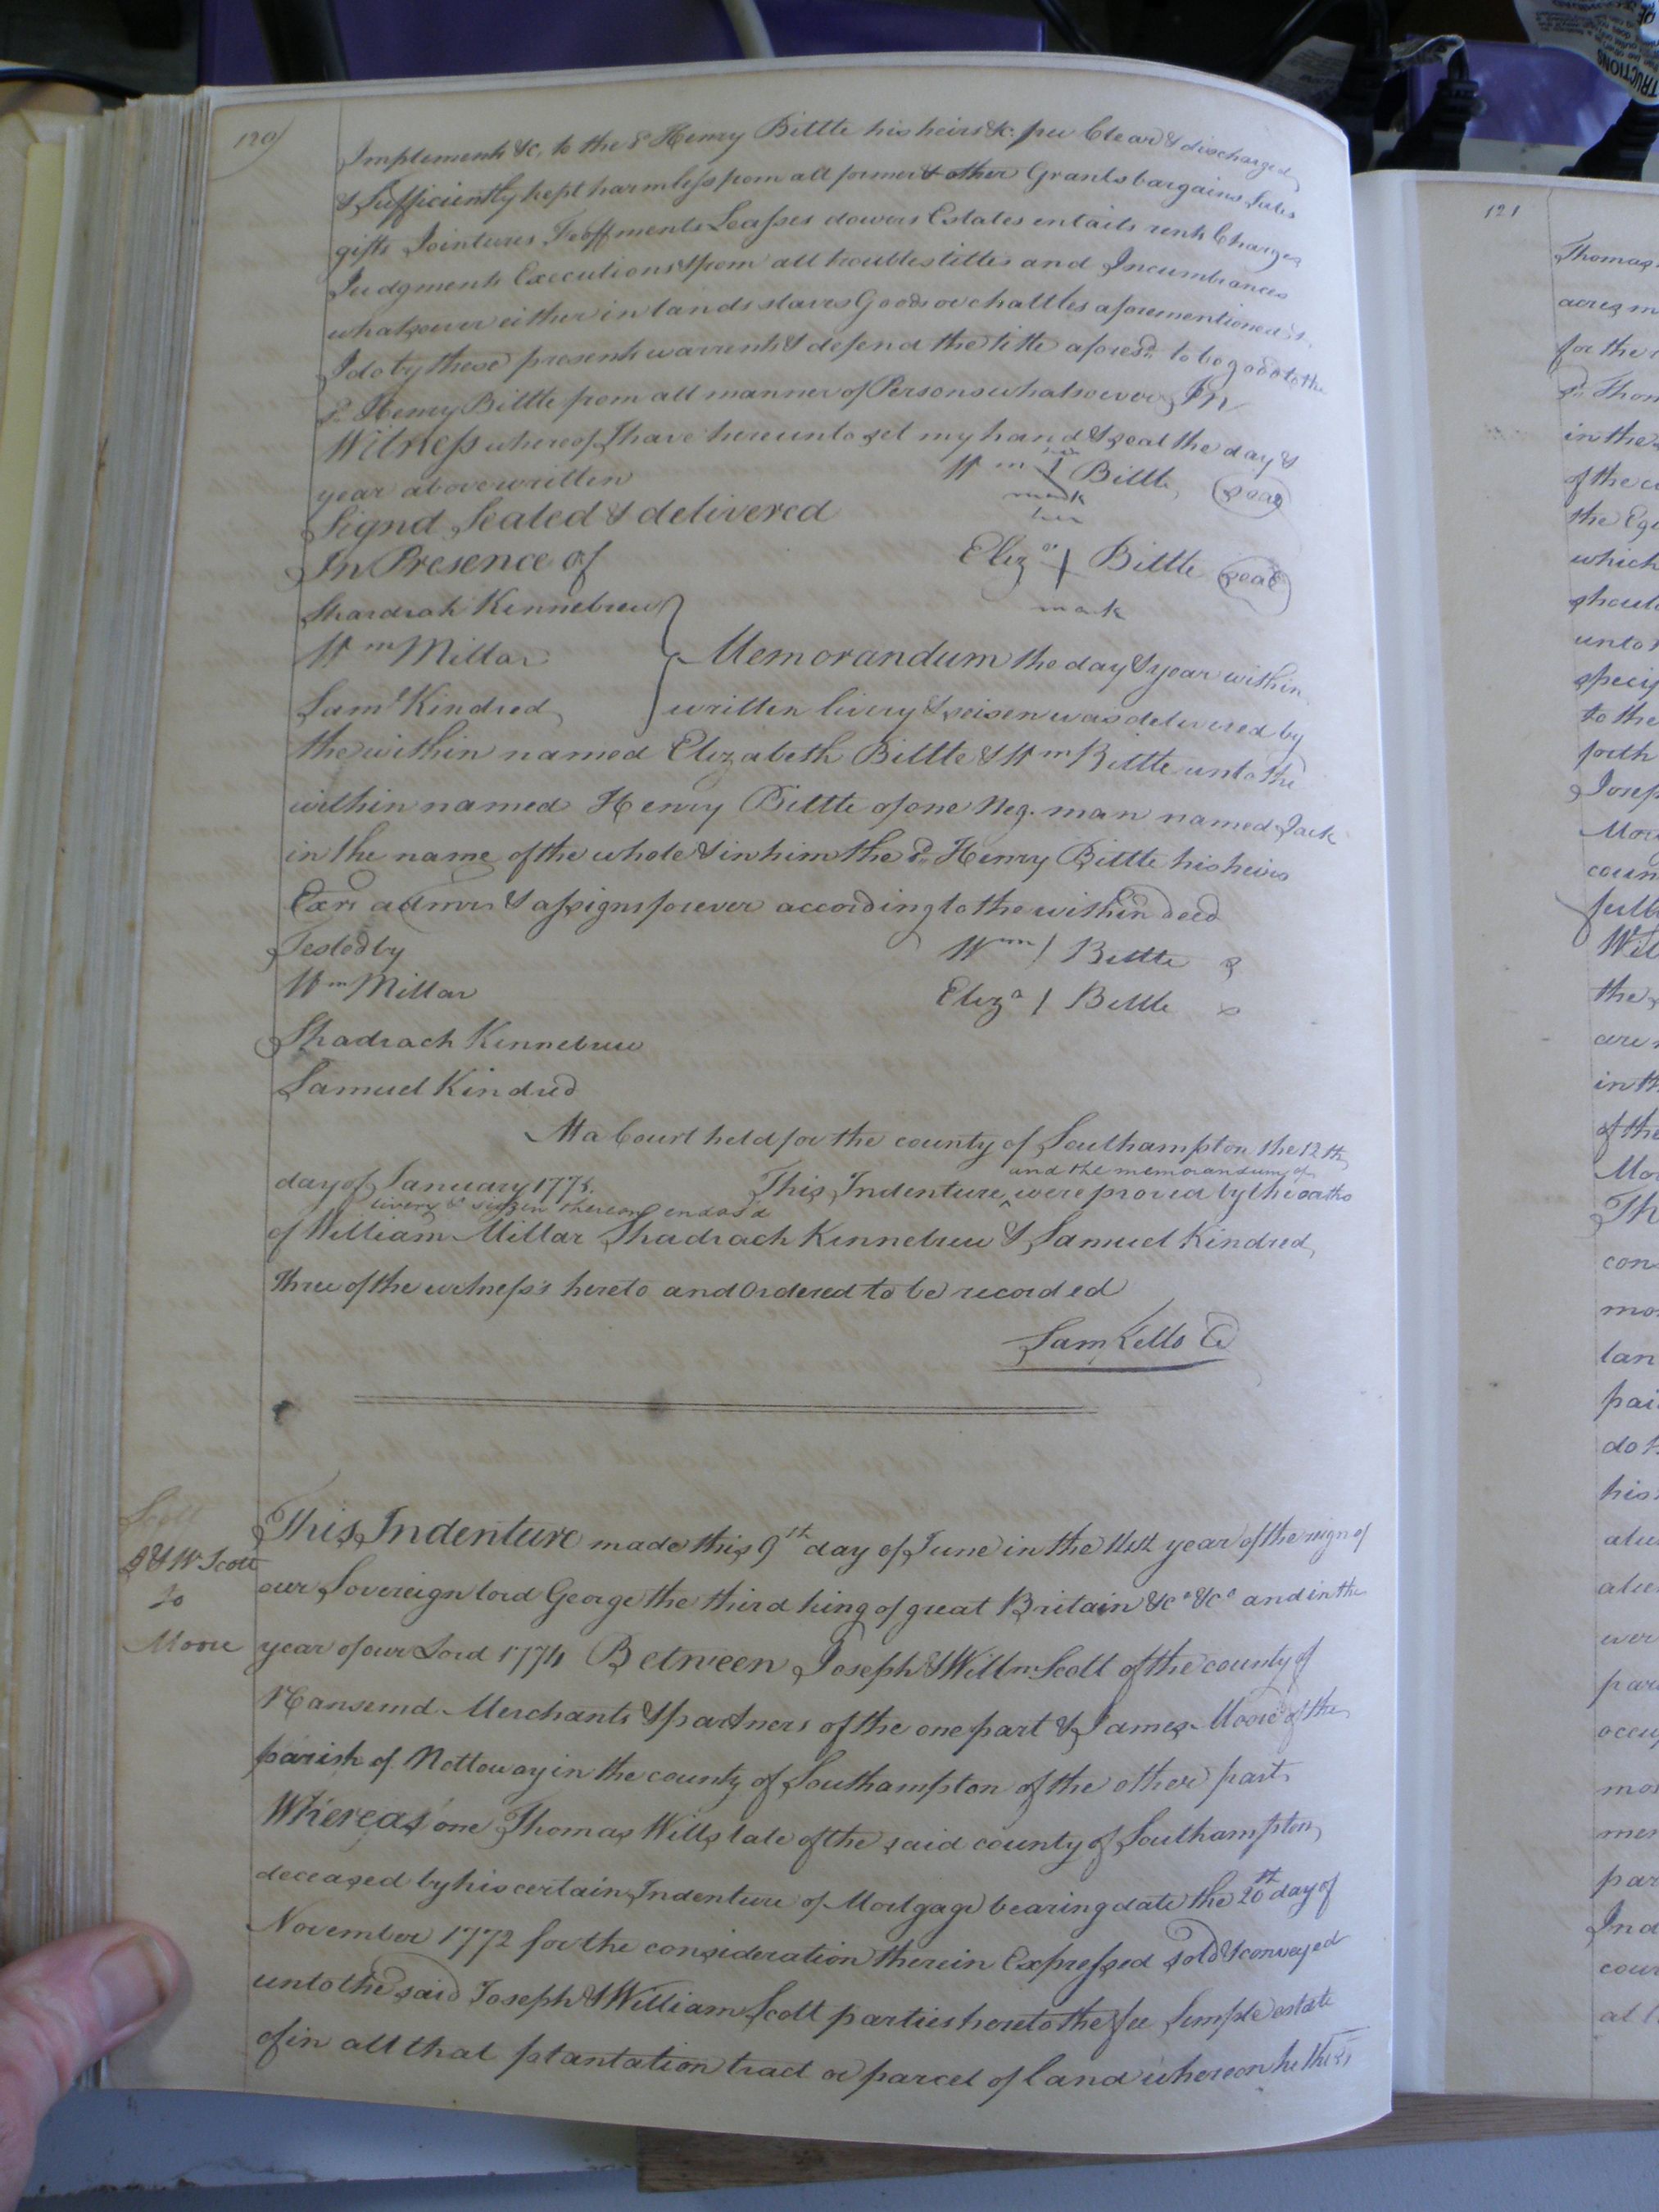 120
Implements &c. to the sd Henry Bittle his heirs &c. free Clear & discharged
& Sufficiently kept harmless from all former & other Grants bargains Sales
gifts Jointures Feoffments Leasses dowers Estates entails rents Charges
Judgments Executions & from all troubles titles and Incumbrances
whatsoever either in lands slaves Goods or chattles aforementioned &
I do by these presents warrent & defend the title aforesd. to be good to the
sd. Henry Bittle from all manner of Persons whatsoever In
Witness whereof I have hereunto set my hand & seal the day &
year above written
his
Wm Bittle seal
mark
Signd Sealed & delivered
her
In Presence of
Eliza Bittle seal
mark
Shardrah Kinnebrew
Wm Millar
Memorandum the day & year within
Saml Kindred
written livery & seisen was delivered by
the within named Elizabeth Bittle & Wm Bittle unto the
within named Henry Bittle of one Neg. man named Jack
in the name of the whole & in him the sd. Henry Bittle his heirs
Exrs admrs & assigns forever according to the within deed
Tested by
Wm Bittle
Wm Millar
Eliza Bittle
Shadrach Kennebrew
Samuel Kindred
At a Court held for the county of Southampton the 12th
day of January 1775. This Indenture and the memorandum of
livery & seizin thereon endosd were proved by the oaths
of William Millar Shadrach Kennebrew & Samuel Kindred,
three of the witness's hereto and Ordered to be recorded
Sam Kello
J & W Scott
to
Moore
This Indenture made this 9th day of June in the year of the reign of
our Sovereign lord George the third king of great Britain &ca &ca and in the
year of our Lord 1774 Between Joseph & Willm Scott of the county of
Nansemd Merchants & partners of the one part & James Moore of the
parish of Nottoway in the county of Southampton of the other part
Whereas one Thomas Wills late of the said county of Southampton
deceased by his certain Indenture of Mortgage bearing date the 20th day of
November 1772 for the consideration therein Expressed sold & conveyed
unto the said Joseph & William Scott parties hereto the fee Simple estate
of in all that plantation tract or parcel of land whereon he the
121
Thomas
acres
for the
sd. Thom
in the
of the
the
which
shoul
unto
speci
to the
forth
Josep
Moo
coun
Wil
the
are
in th
of the
Moo
Th
con
mo
lan
pai
do
his
ever
par
occu
mo
mer
par
Ind
cour
at